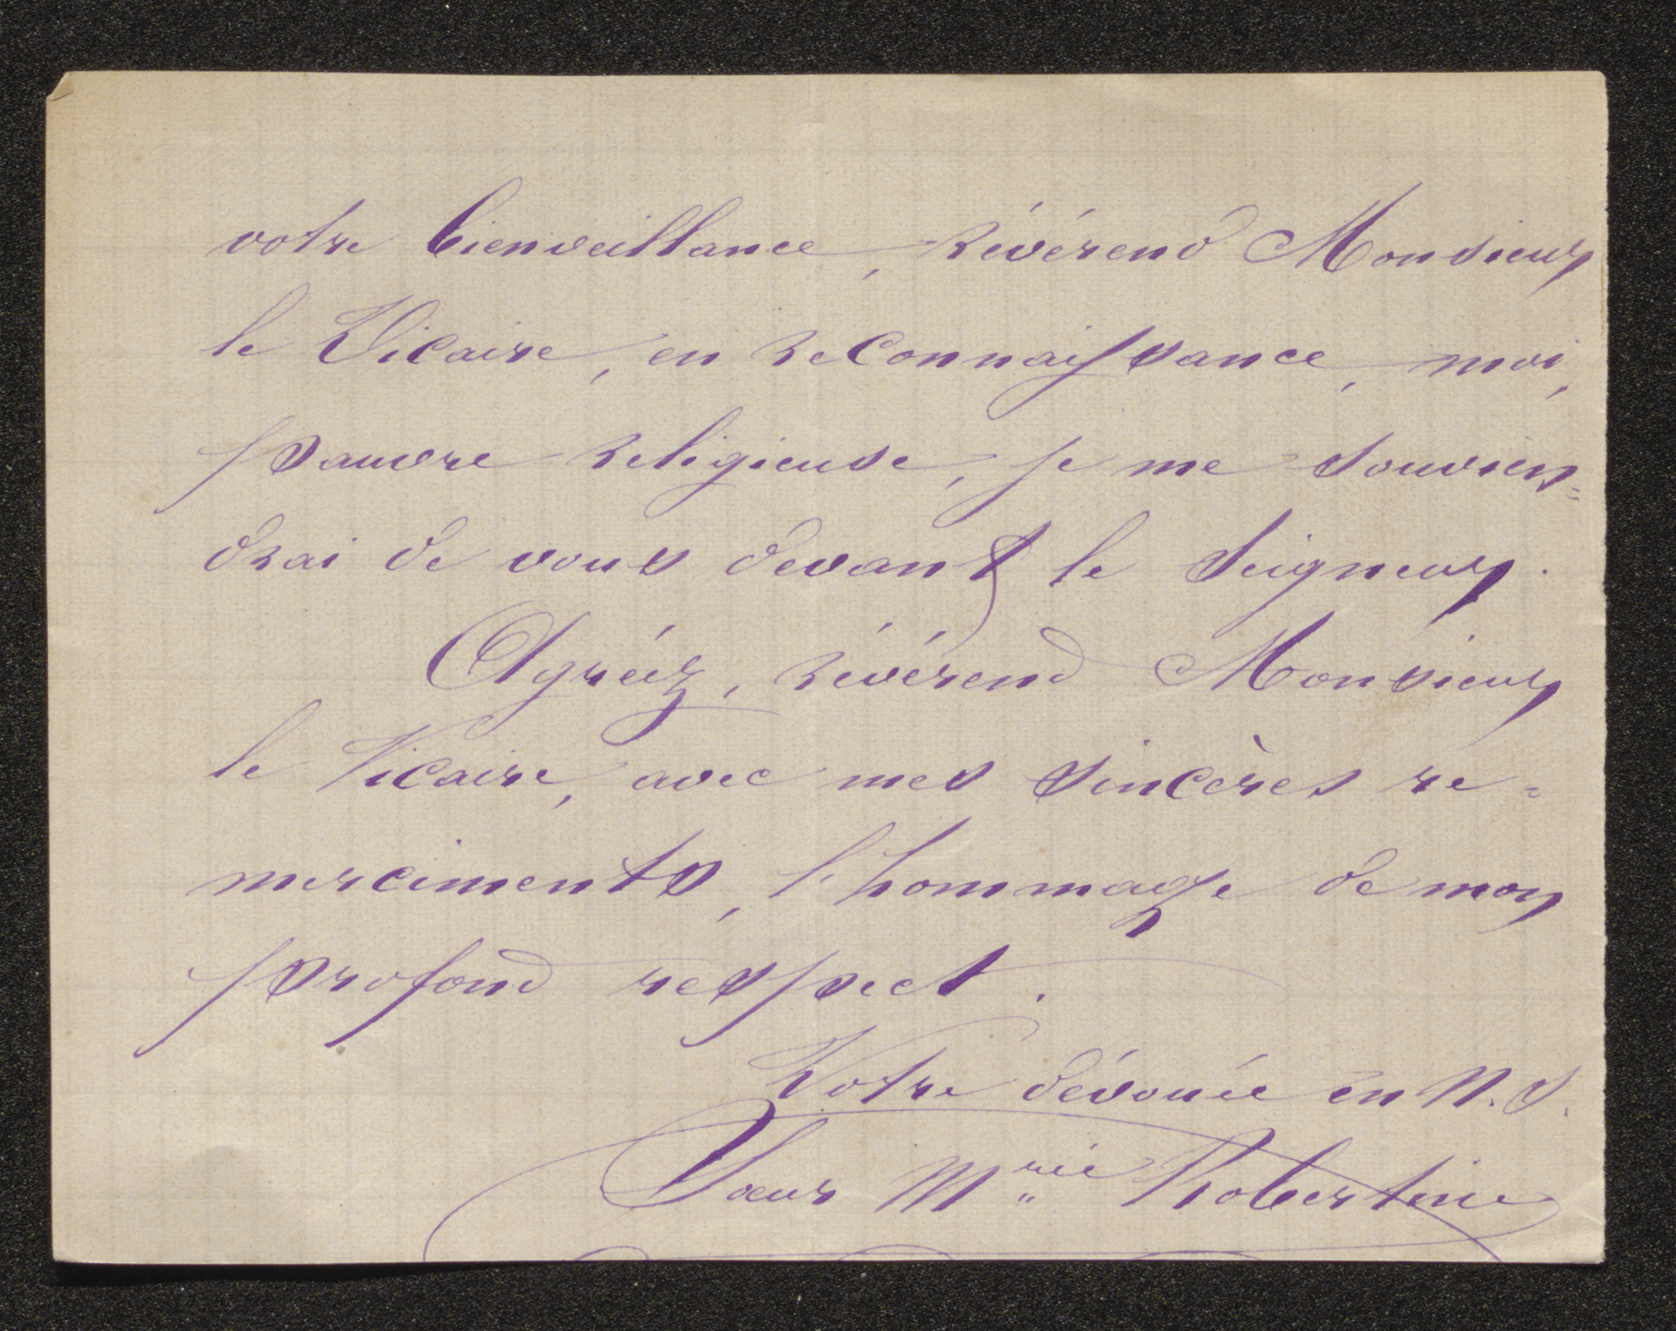 votre bienveillance, révérend Monsieur
le Vicaire, en reconnaissance, moi,
pauvre religieuse, je me souvien=
drai de vous devant le Seigneur.
Agréez, révérend Monsieur
le Vicaire, avec mes sincères re=
merciments, l'hommage de mon
profond respect.
Votre dévouée en N. S.
Soeur Mrie Robertine